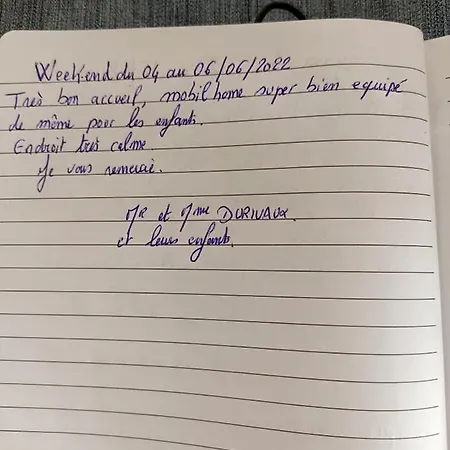 Week-end du 04 au 06/06/2022
Très bon accueil, mobilhome super bien equipé
de même pour les enfants.
Endroit très calme
Je vous remerai.
Mr et Mme DURIVAUX.
et leurs enfants.